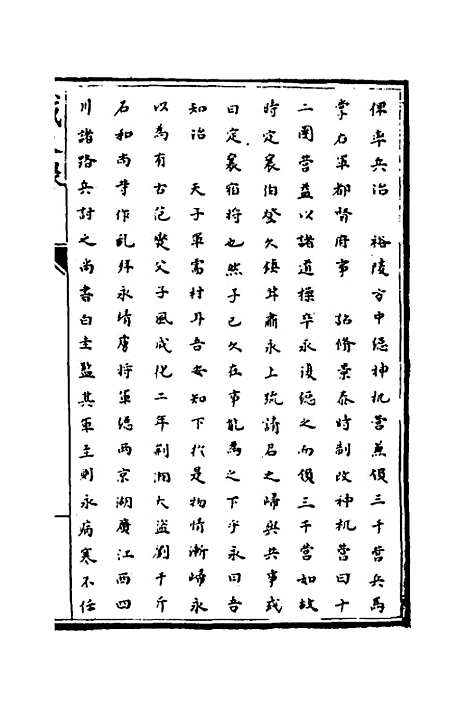 俾率兵治　裕陵方中總神机營兼領三千營兵馬
掌右軍都督府事　詔脩景泰時制改神机營曰十
二團營益以諸道操卒永復總之而領三千營如故
時定襄伯登久鎮甘肅永上疏請召之歸與共事或
曰定襄宿將也然子已久在事能為之下乎永曰吾
知治　天子軍需材耳吾安知下於是物情漸歸永
以為有古范燮父子風成化二年荊湘大盗劉千斤
石和尚等作乱拜永靖虜将軍總两京湖廣江西四
川諸路兵討之尚書白圭監其軍至則永病寒不任